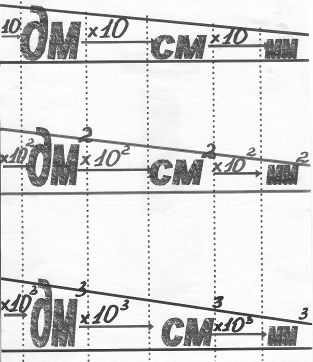 10 дм ×10 см ×10 мм
×10² дм² ×10² см² ×10² мм²
×10³ дм³ ×10³ см³ ×10³ мм³